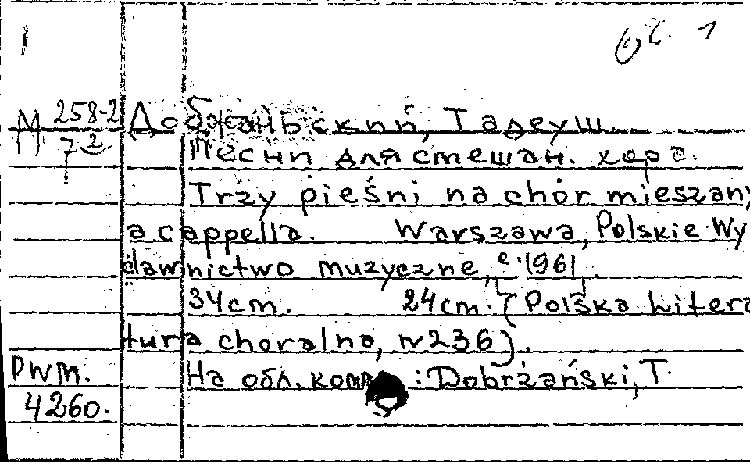 М 258-2
72
Добжаньский, Тадеуш.
Песни для смешан. хора.
Trzy pieśni na chór mieszany
a cappella. Warszawa, Polskie Wy
dawnictwo muzyczne, c. 1961.
34cm. 24cm. [Polska litera
tura choralna, N236].
PWM. На обл. комп.: Dobrzański, T
4260.